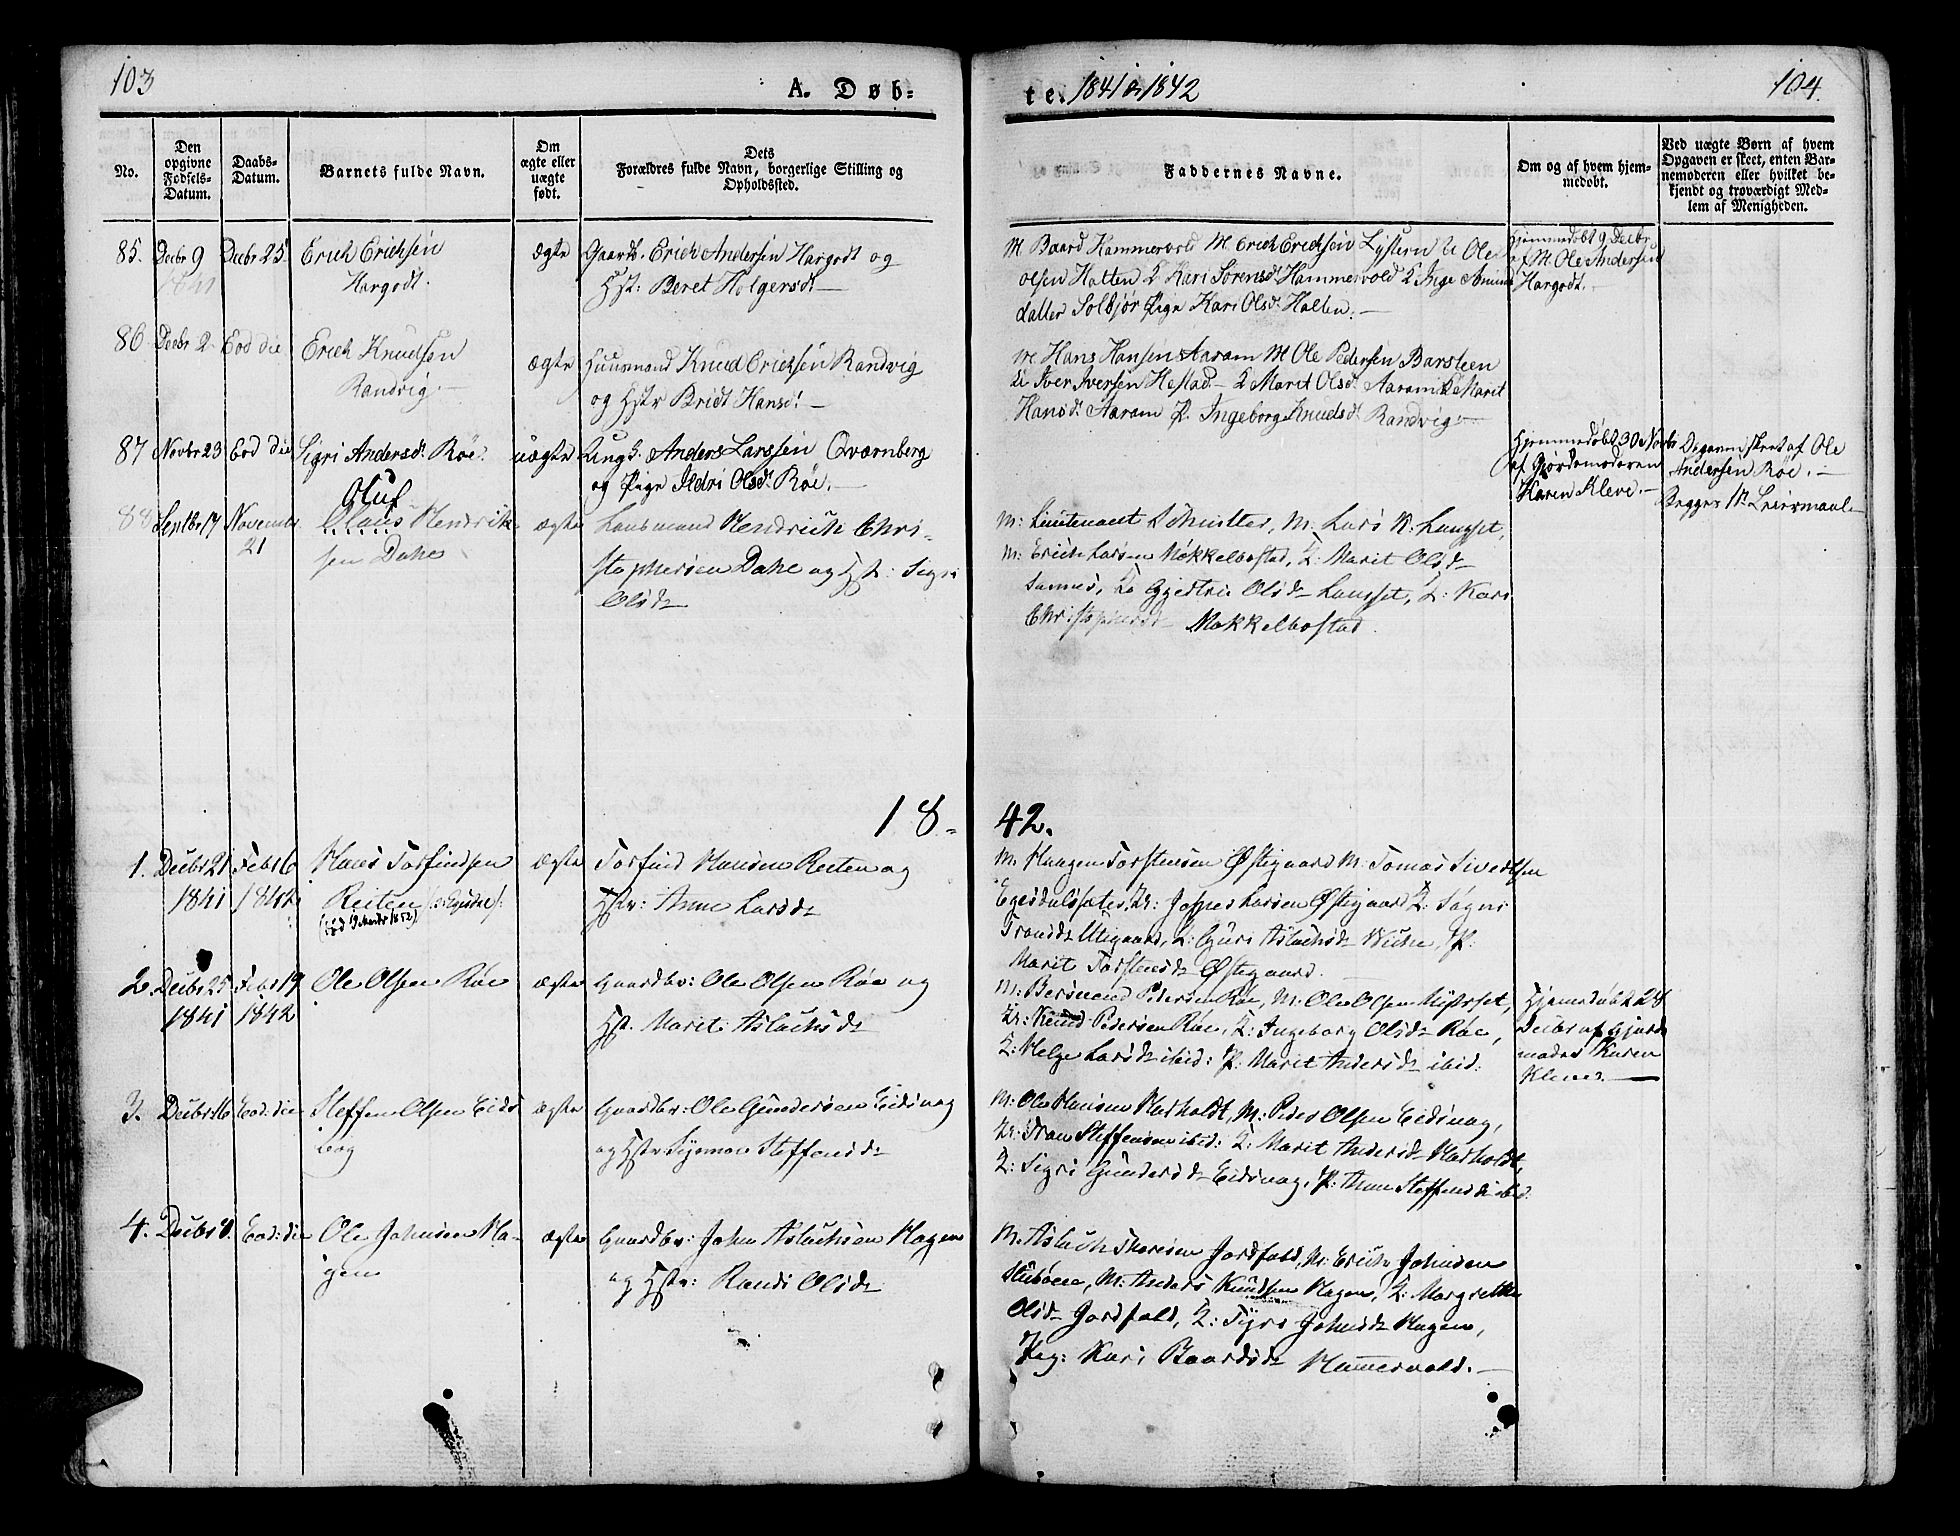 103
A. Døb-
te. 1841 & 1842
104.
No.
Den opgivne Fødsels-Datum.
Daabs-Datum.
Barnets fulde Navn.
Om ægte eller uægte født.
Dets Forældres fulde Navn, borgerlige Stilling og Opholdssted.
Faddernes Navne.
Om og af hvem hjem-medøbt.
Ved uægte Børn af hvem Opgaven er skeet, enten Bar-nemoderen eller hvilket be-kjendt og troværdigt Med-lem af Menigheden.
85. Decbr 9 Decbr 25 Erich Erichsen ægte Gaardb. Erich Andersen Hargodt og
Hargodt. Hst: Beret Holgersdt —
M Baard Hammervold M Erich Erichsen Lystern U Ole
Olsen Holten K Kari Sørensdt Hammervold K Inge Amund
datter Solbjør Pige Kari Olsdt Holten. —
Hjemmedøbt 9 Decbr
af M. Ole Andersen
Hargodt. —
86 Decbr 2 Eod die Erich Knudsen ægte Huusmand Knud Erichsen Randvig
Randvig. — og Hstr Bridt Hansdt —
M Hans Hansen Aaram M Ole Pedersen Barsteen
U Iver Iversen Hestad — K Marit Olsdt Aaram K Marit
Hansdt Aaram P. Ingeborg Knudsdt Randvig —
87 Novbr 23 Eod die Sigri Andersdt Røe. uægte Ungk. Anders Larssen Qværnberg
og Pige Ildri Olsdt Røe. —
Hjemmedøbt 30 Novbr
af Gjordemoderen
Karen Kleve. —
Opgaven skeet af Ole
Andersen Røe. —
Begges 1ste Leiermaal —
88 Septbr 17 November
21
Oluf
Olaus Hendrik-
sen Dahe
ægte
Hendrich Chri-
stophersen Dahe og Hst: Segri
Olsdt
M: Lieutenant Schnitler, M. Lars K: Langset,
M: Erich Larsen Mokkelbostad, K: Marit Olsdt
Sannes, K: Gjertri Olsdt Langset, K: Kari
Christophersdt Mokkelbostad.
18-42.
1. Decbr 21 Febr 6 Hans Torfindsen ægte Torfind Hansen Reiten og
1841 1842 Reiten
(død 19 Marts 1852)
Hstr: Anne Larsdt
M. Haagen Torstensen Østigaard M: Tomas Sivertsen
Egesdalssæter, U: Jesper Larsen Østigaard K: Sigri
Trondsdt Utigaard, K: Guri Aslachsdt Wiche, P:
Marit Torstensdt Østigaard.
2. Decbr 25 Febr 19 Ole Olsen Røe ægte Gaardbr: Ole Olsen Røe og
1841 1842 Hst: Marit Aslachsdt
M: Bersvend Pedersen Røe, M: Ole Olsen
U: Knud Pedersen Røe, K: Ingeborg Olsdt Røe,
K: Helge Larsdt ibid: P: Marit Andersdt ibid:
Hjemedøbt 28
Decbr af Gjord
moder Karen
Kleve. —
3. Decbr 16 Eod: die Steffen Olsen Eids ægte Gaardbr: Ole Gundersen Eidsvag
vag og Hstr Synnøv Steffensdt
M: Ole Hansen Hatholdt, M: Peder Olsen Eidsvag,
U: Tron Steffensen ibid: K: Marit Andersdt Hatholdt,
K: Sigri Gundersdt Eidsvag, P: Anne Steffensdt ibid.
4. Decbr 8. Eod: die Ole Johnsen Ha- ægte Gaardbr: John Aslachsen Hagen
gen og Hstr: Randi Olsdt
M. Aslach Thoresen Jordfald, M: Erich Johnsen
M: Anders Knudsen Hagen, K: Margrethe
Olsdt Jordfald, K: Tyri Johnsdt Hagen,
Pig: Kari Baardsdt Hammervold. —